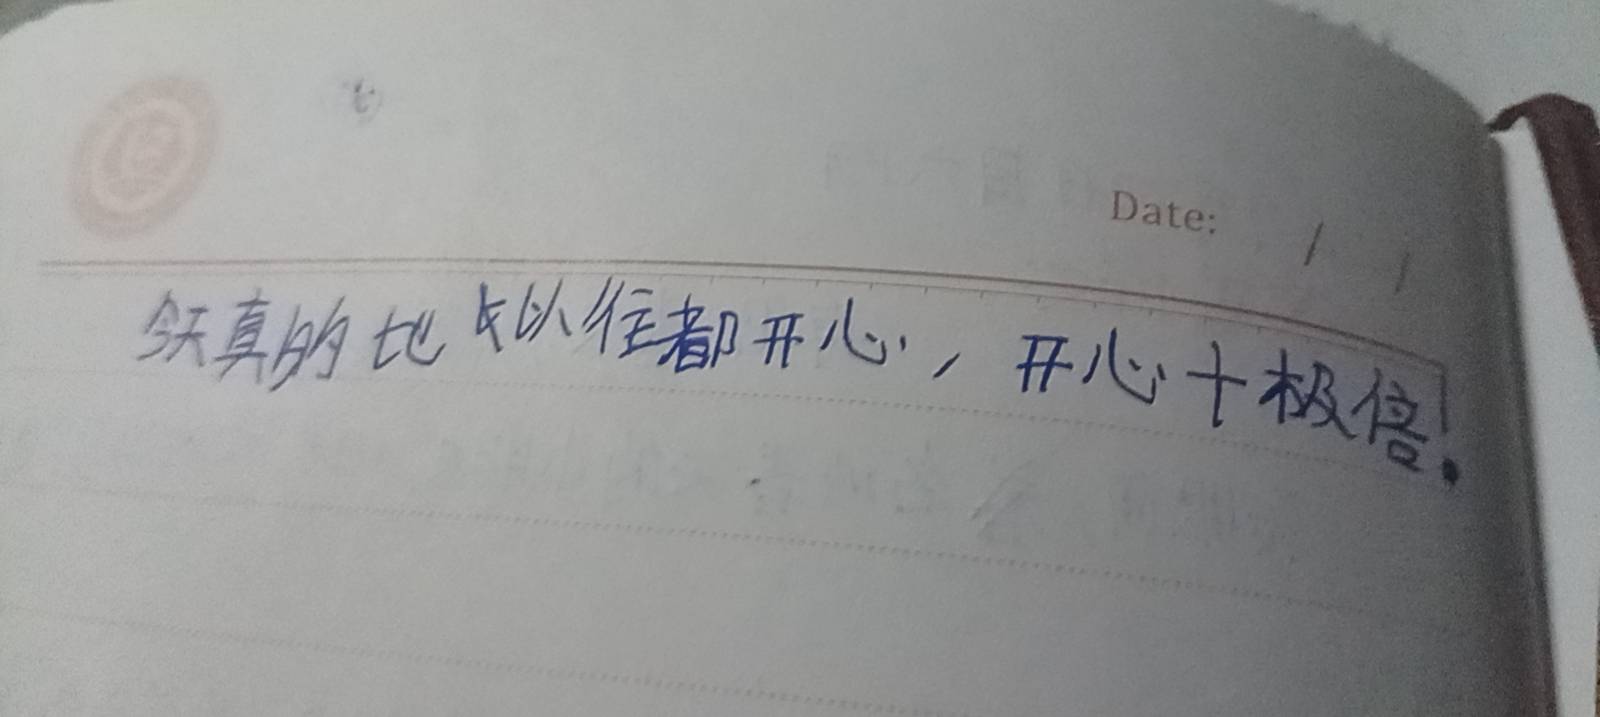 Date: / /
今天真的比以往都开心，开心十极倍！